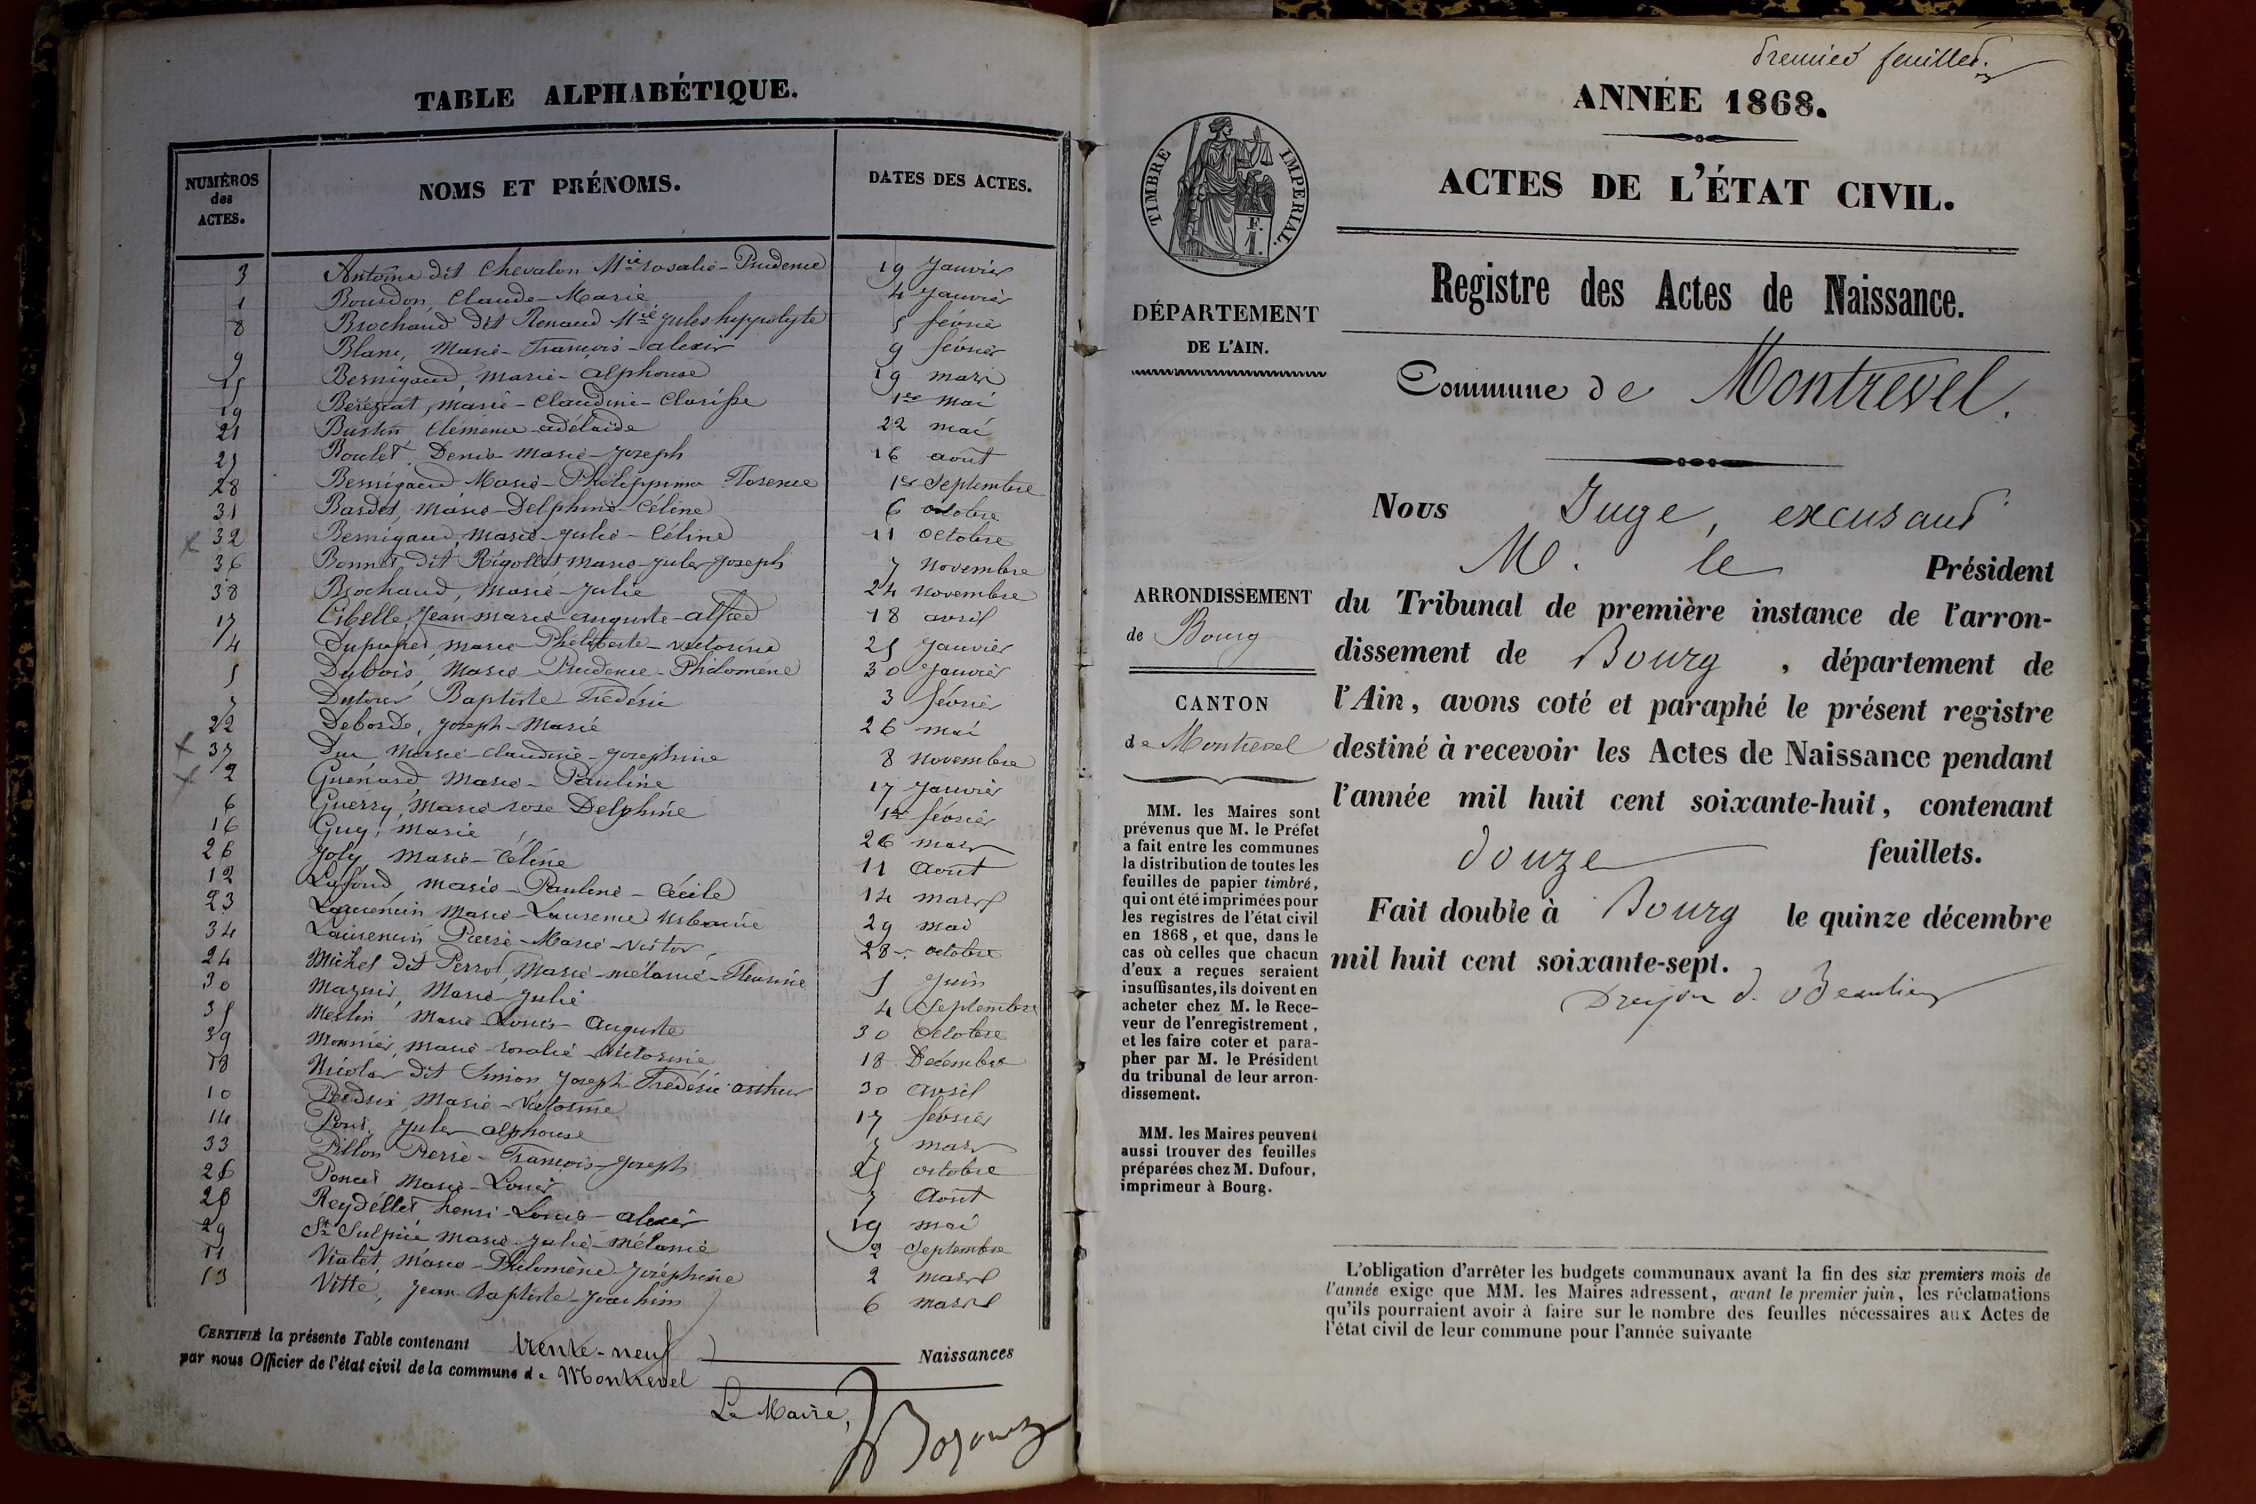 TABLE ALPHABÉTIQUE.
NUMÉROS des ACTES.
NOMS ET PRÉNOMS.
DATES DES ACTES.
3 Antoine dit Chevalon Mie rosalie-Prudence 19 Janvier
1 Bourdon, Claude-Marie 4 Janvier
8 Brochand dit Renaud Mie jules hyppolyte 5 février
9 Blanc, Marie-François-alexis 9 février
15 Bernigaud, Marie-alphonse 19 mars
19 marie-Claudine-Clarisse 1er mai
21 Clémence-adélaïde 22 mai
25 Boulet Denis-marie-joseph 16 août
28 Bernigaud Marie-Philippine Florence 1er Septembre
31 Bardet, Marie-Delphine-Céline 6 octobre
x 32 Bernigaud, Marie-julie-Céline 11 octobre
36 Bonnet dit Rigollet marie-jules-joseph 7 Novembre
38 Brochand, Marie-Julie 24 novembre
17 Cibelle, Jean-marie auguste-alfred 18 avril
4 marie-Philiberte-victorine 25 Janvier
5 Dubois, Marie-Prudence-Philomène 30 Janvier
7 Dutour Baptiste Frédéric 3 février
22 Deborde, joseph-Marie 26 mai
x 37 Duc Marie-claudine-josephine 8 novembre
x 2 Guénard Marie-Pauline 17 Janvier
6 Guerry, Marie rose Delphine 1er février
16 Guy, Marie 26 mars
26 Joly, Marie-Céline 11 Août
12 Lafond, Marie-Pauline-Cécile 14 mars
23 Laurencin Marie-Laurence 29 mai
34 Laurencin Pierre-Marie-victor 28 octobre
24 Michel dit Perrot, Marie-mélanie-Fleurine 5 Juin
30 Marie-Julie 4 Septembre
35 Merlin Marie-Louis-Auguste 30 Octobre
39 Monnier, Marie-rosalie-Victorine 18 Décembre
18 Nicolas dit Simon Joseph-Frédéric arthur 30 avril
10 Perdrix, Marie-Victorine 17 février
14 Jules alphonse 7 mars
33 Pillon Pierre-François-Joseph 25 octobre
26 Poncet Marie-Louis 7 Août
20 Reydellet henri-Louis-alexis 19 mai
29 St Sulpice Marie-Julie-Mélanie 2 Septembre
11 Violet, Marie-Philomène-Joséphine 2 mars
13 Vitte, Jean-Baptiste-Joachim 6 mars
CERTIFIÉ la présente Table contenant trente-neuf Naissances
par nous Officier de l'état civil de la commune de Montrevel
Le Maire,
Premier feuillet.
ANNÉE 1868.
ACTES DE L'ÉTAT CIVIL.
TIMBRE IMPERIAL.
F.
1.
Registre des Actes de Naissance.
DÉPARTEMENT
DE L'AIN.
Commune de Montrevel.
Nous Juge, excusant
M. le Président
du Tribunal de première instance de l'arron-
dissement de Bourg, département de
l'Ain, avons coté et paraphé le présent registre
destiné à recevoir les Actes de Naissance pendant
l'année mil huit cent soixante-huit, contenant
douze feuillets.
Fait double à Bourg le quinze décembre
mil huit cent soixante-sept.
ARRONDISSEMENT
de Bourg
CANTON
de Montrevel
MM. les Maires sont
prévenus que M. le Préfet
a fait entre les communes
la distribution de toutes les
feuilles de papier timbré,
qui ont été imprimées pour
les registres de l'état civil
en 1868, et que, dans le
cas où celles que chacun
d'eux a reçues seraient
insuffisantes, ils doivent en
acheter chez M. le Rece-
veur de l'enregistrement,
et les faire coter et para-
pher par M. le Président
du tribunal de leur arron-
dissement.
MM. les Maires peuvent
aussi trouver des feuilles
préparées chez M. Dufour,
imprimeur à Bourg.
L'obligation d'arrêter les budgets communaux avant la fin des six premiers mois de
l'année exige que MM. les Maires adressent, avant le premier juin, les réclamations
qu'ils pourraient avoir à faire sur le nombre des feuilles nécessaires aux Actes de
l'état civil de leur commune pour l'année suivante